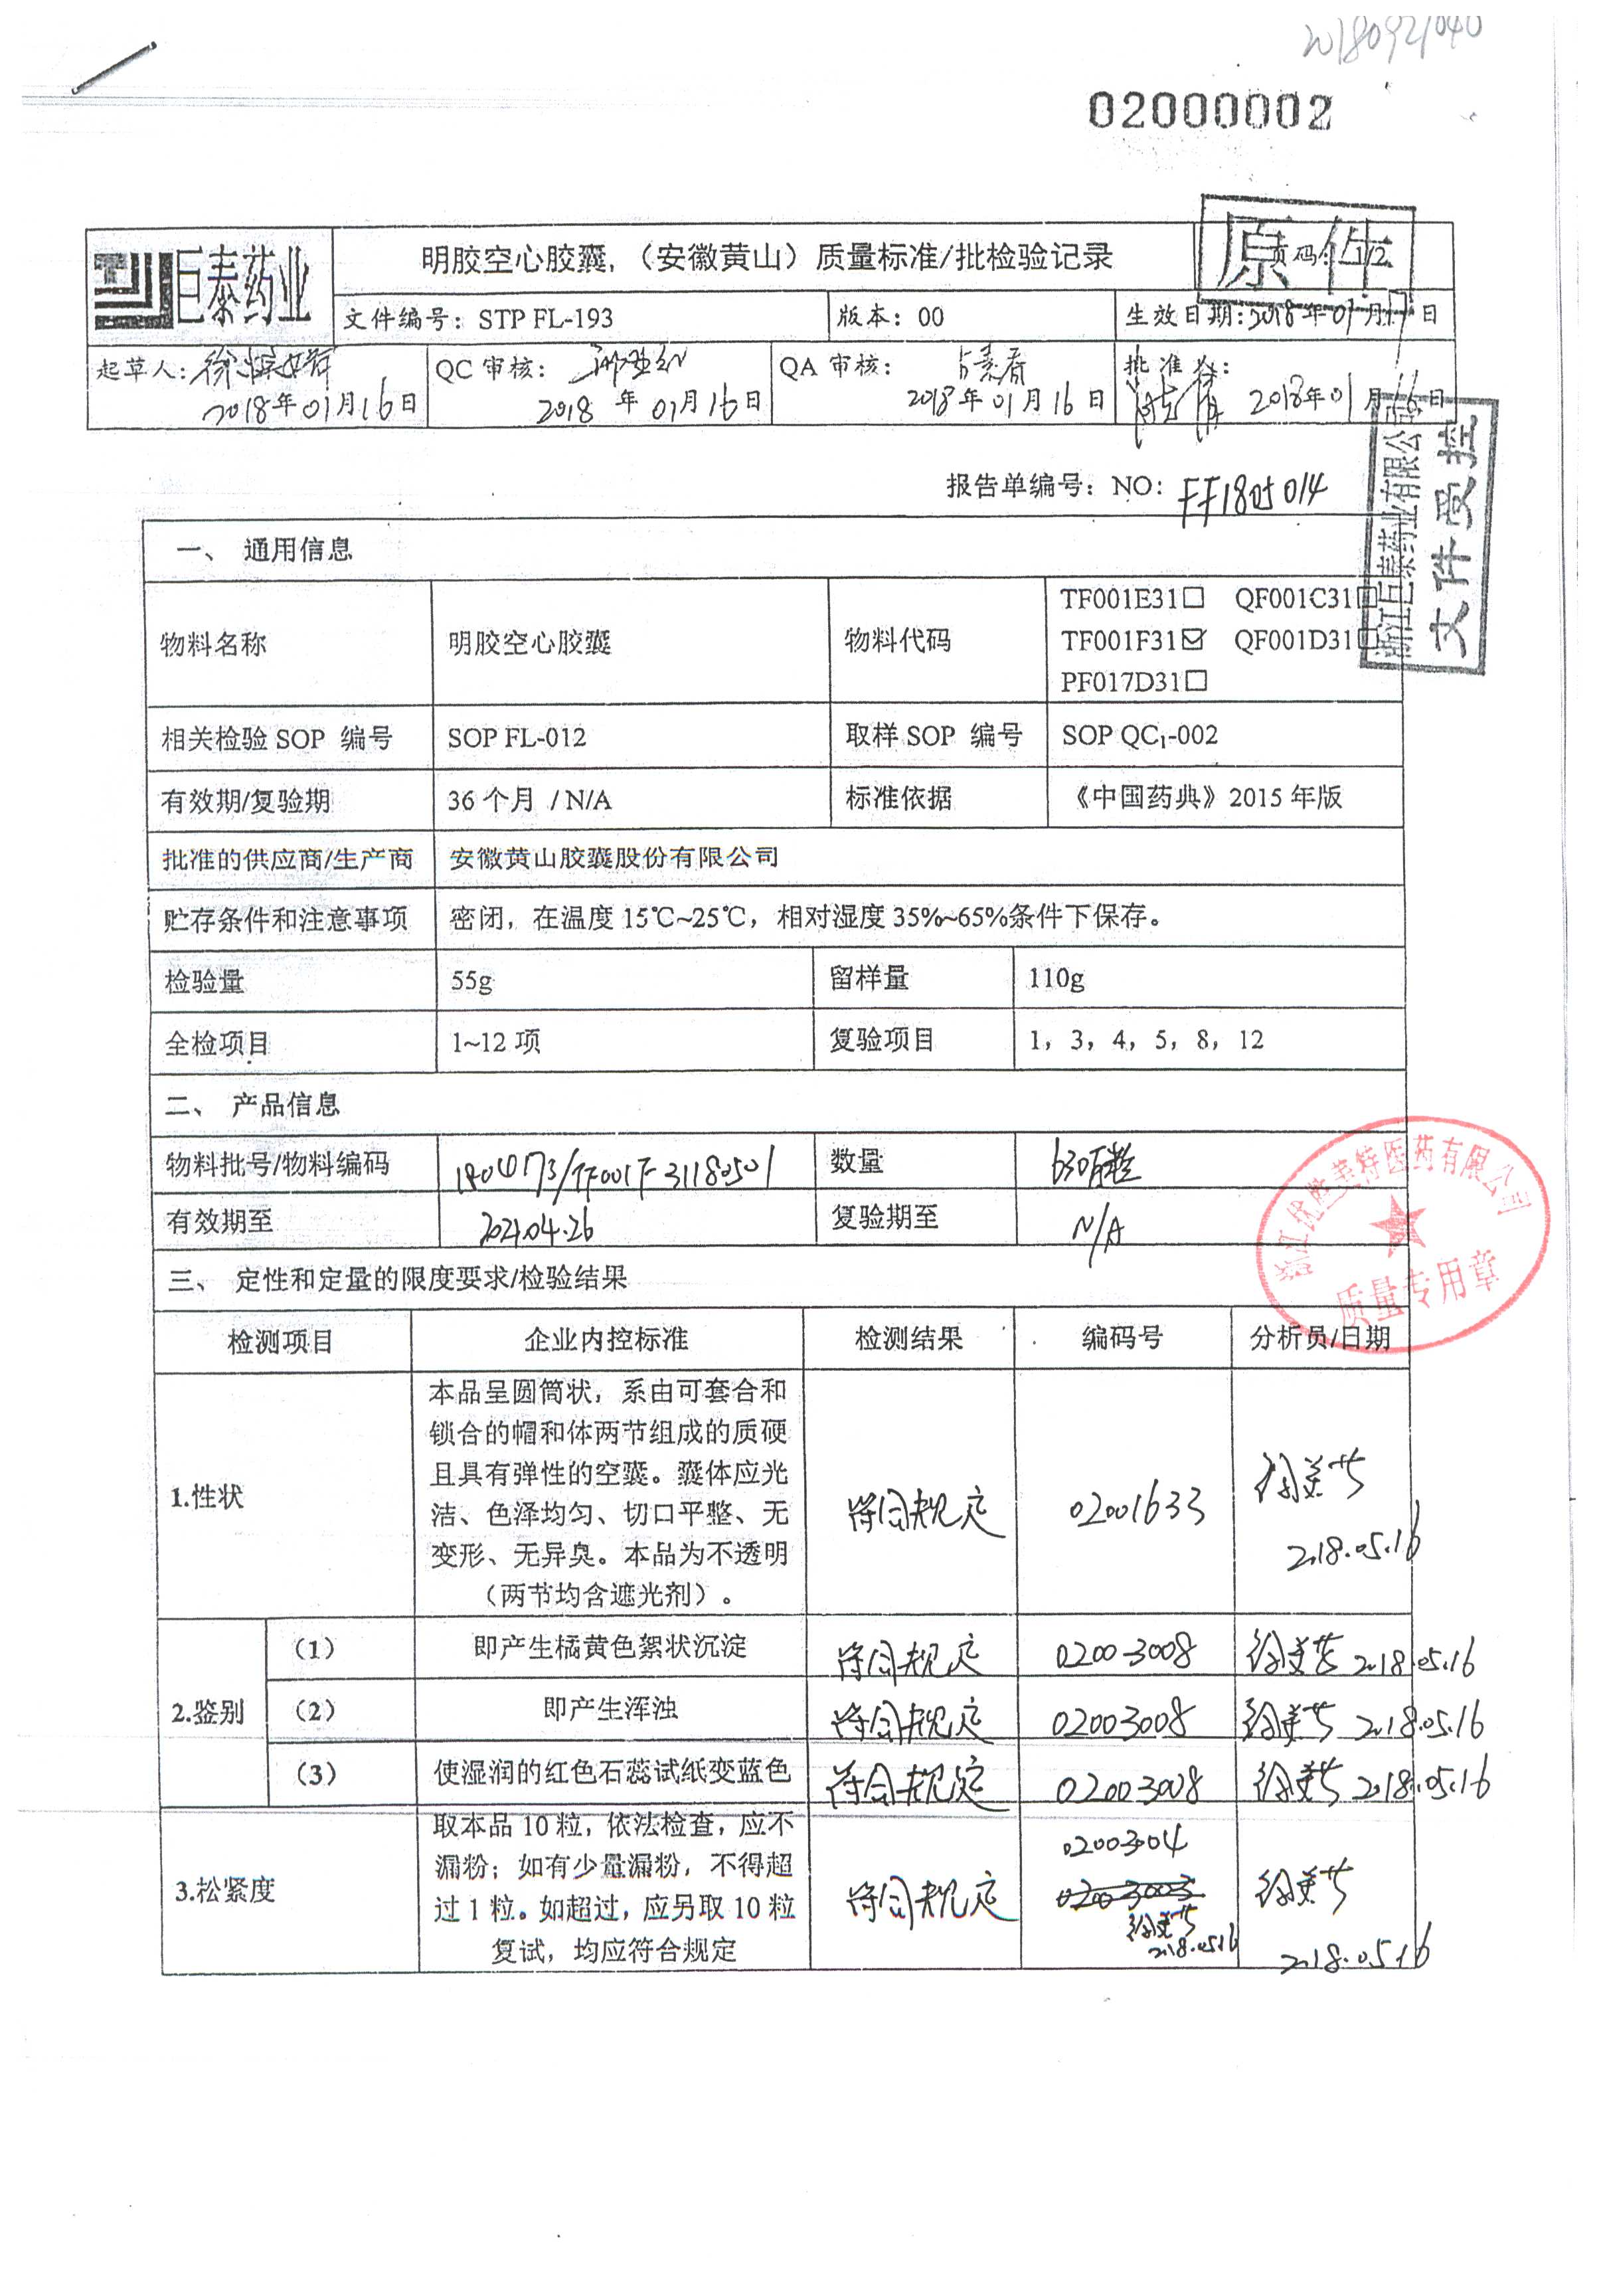 20180921040
02000002
巨泰药业
明胶空心胶囊,（安徽黄山）质量标准/批检验记录
页码: 1/2
原件
文件编号: STP FL-193
版本: 00
生效日期: 2018年01月17日
起草人:
2018年01月16日
QC 审核:
2018 年 01月16日
QA 审核:
2018年01月16日
批准人:
2018年01月16日
浙江巨泰药业有限公司
文件受控
报告单编号: NO: FF1805014
一、 通用信息
物料名称
明胶空心胶囊
物料代码
TF001E31□ QF001C31□
TF001F31☑ QF001D31□
PF017D31□
相关检验 SOP 编号
SOP FL-012
取样 SOP 编号
SOP QC₁-002
有效期/复验期
36 个月 / N/A
标准依据
《中国药典》2015 年版
批准的供应商/生产商
安徽黄山胶囊股份有限公司
贮存条件和注意事项
密闭，在温度 15℃~25℃，相对湿度 35%~65%条件下保存。
检验量
55g
留样量
110g
全检项目
1~12 项
复验项目
1，3，4，5，8，12
二、 产品信息
物料批号/物料编码
/TF001F31180501
数量
630万粒
有效期至
2021.04.26
复验期至
N/A
浙江优胜美特医药有限公司
质量专用章
三、 定性和定量的限度要求/检验结果
检测项目
企业内控标准
检测结果
编码号
分析员/日期
1.性状
本品呈圆筒状，系由可套合和
锁合的帽和体两节组成的质硬
且具有弹性的空囊。囊体应光
洁、色泽均匀、切口平整、无
变形、无异臭。本品为不透明
（两节均含遮光剂）。
符合规定
02001633
2018.05.16
2.鉴别
（1）
即产生橘黄色絮状沉淀
符合规定
02003008
2018.05.16
（2）
即产生浑浊
符合规定
02003008
2018.05.16
（3）
使湿润的红色石蕊试纸变蓝色
符合规定
02003008
2018.05.16
3.松紧度
取本品 10 粒，依法检查，应不
漏粉；如有少量漏粉，不得超
过 1 粒。如超过，应另取 10 粒
复试，均应符合规定
符合规定
02003004
02003003
2018.05.16
2018.05.16